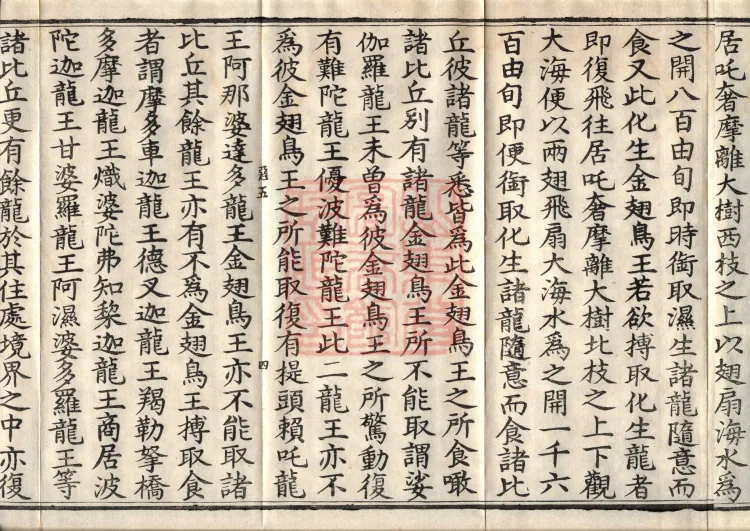 居吒奢摩離大樹西枝之上以翅扇海水爲
之開八百由旬即時銜取濕生諸龍隨意而
食又此化生金翅鳥王若欲搏取化生龍者
即復飛往居吒奢摩離大樹北枝之上下觀
大海便以兩翅飛扇大海水爲之開一千六
百由旬即便銜取化生諸龍隨意而食諸比
丘彼諸龍等悉皆爲此金翅鳥王之所食噉
諸比丘別有諸龍金翅鳥王所不能取謂娑
伽羅龍王未曾爲彼金翅鳥王之所驚動復
有難陀龍王優波難陀龍王此二龍王亦不
爲彼金翅鳥王之所能取復有提頭賴吒龍
五
四
王阿那婆達多龍王金翅鳥王亦不能取諸
比丘其餘龍王亦有不爲金翅鳥王搏取食
者謂摩多車迦龍王德叉迦龍王羯勒拏橋
多摩迦龍王熾婆陀弗知黎迦龍王商居波
陀迦龍王甘婆羅龍王阿濕婆多羅龍王等
諸比丘更有餘龍於其住處境界之中亦復